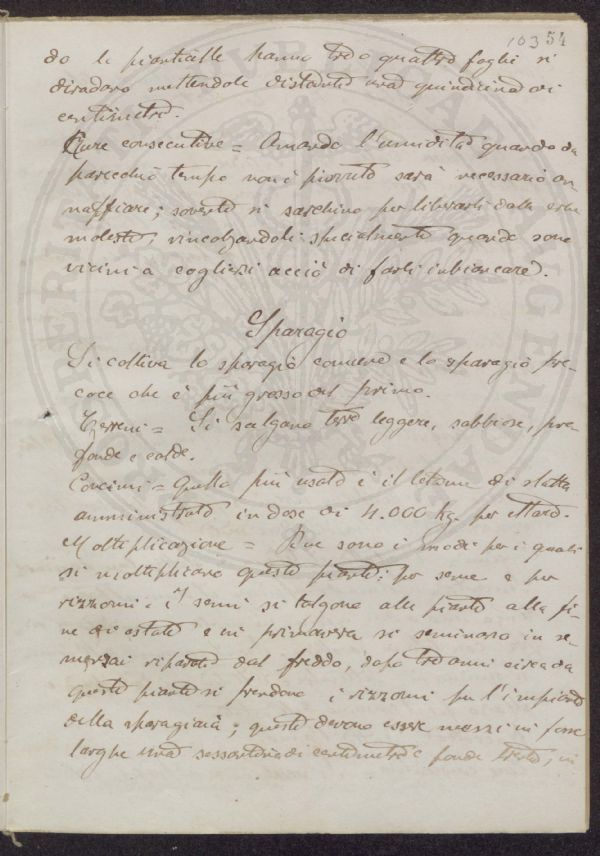 103 54
do le pianticelle hanno tre o quattro foglie si
diradano mettendole distante una quindicina di
centimetri.
Cure consecutive = Amando l'umidità quando da
parecchio tempo non è piovuto sarà necessario an-
naffiare; sovente si sarchino per liberarli dalle erbe
moleste, rincalzandoli specialmente quando sono
vicini a cogliersi acciò di farli imbiancare.
Sparagio
Si coltiva lo sparagio comune e lo sparagio pre-
coce che è più grosso del primo.
Terreni = Si scelgano terre leggere, sabbiose, pro-
fonde e calde.
Concimi = Quello più usato è il letame di stalla
amministrato in dose di 4.000 kg. per ettaro.
Moltiplicazione = Due sono i modi per i quali
si moltiplicano queste piante: per seme e per
rizzomi i semi si tolgono alle piante alla fi-
ne di estate e in primavera si seminano in se-
menzai riparati dal freddo, dopo tre anni circa da
queste piante si prendono i rizzomi per l'impianto
della sparagiaia; queste devono essere messi in fosse
larghe una sessantina di centimetri e fonde trenta, in